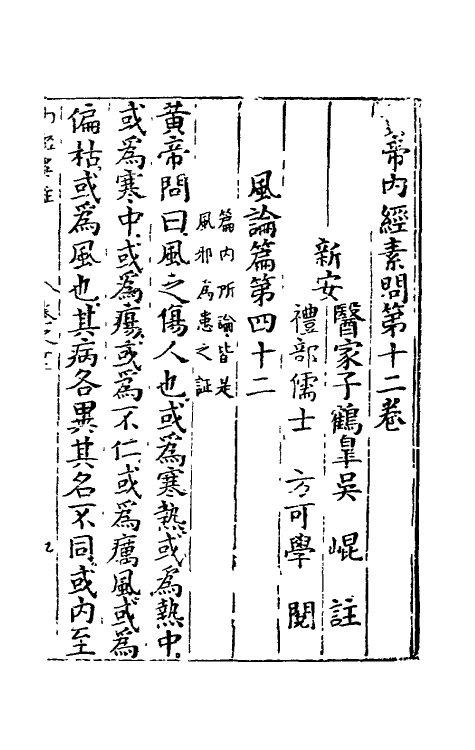 帝內經素問第十二卷
新安
醫家子鶴臯吳 崐 註
禮部儒士 方可學 閱
風論篇第四十二
篇內所論皆是
風邪為患之証
黃帝問曰風之傷人也或為寒熱或為熱中
或為寒中或為瘍或為不仁或為癘風或為
偏枯或為風也其病各異其名不同或內至